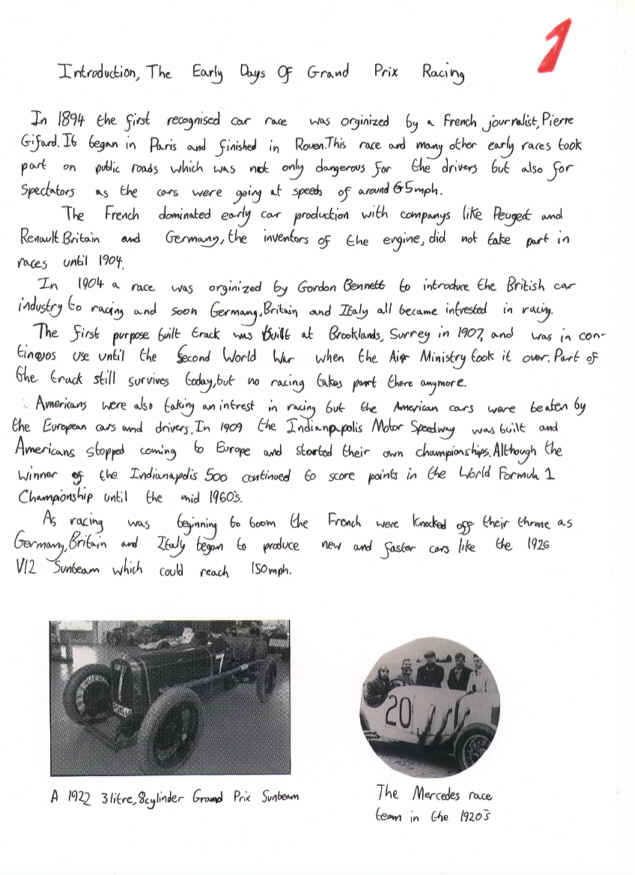 1
Introduction, The Early Days Of Grand Prix Racing
In 1894 the first recognised car race was orginized by a French journalist, Pierre
Gifard. It began in Paris and finished in Rouen. This race and many other early races took
part on public roads which was not only dangerous for the drivers but also for
Spectators as the cars were going at speeds of around 65mph.
The French dominated early car production with companys like Peugeot and
Renault. Britain and Germany, the inventors of the engine, did not take part in
races until 1904.
In 1904 a race was orginized by Gordon Bennett to introduce the British car
industry to racing and soon Germany, Britain and Italy all became intrested in racing.
The first purpose built track was built at Brooklands, Surrey in 1907, and was in con-
tinuos use until the Second World War when the Air Ministry took it over. Part of
the track still survives today, but no racing takes part there anymore.
Americans were also taking an intrest in racing but the American cars were beaten by
the European cars and drivers. In 1909 the Indianapolis Motor Speedway was built and
Americans stopped coming to Europe and started their own championships. Although the
winner of the Indianapolis 500 continued to score points in the World Formula 1
Championship until the mid 1960's.
As racing was beginning to boom the French were knocked off their throne as
Germany, Britain and Italy began to produce new and faster cars like the 1926
V12 Sunbeam which could reach 150mph.
7
20
A 1922 3 litre, 8 cylinder Grand Prix Sunbeam
The Mercedes race
team in the 1920's